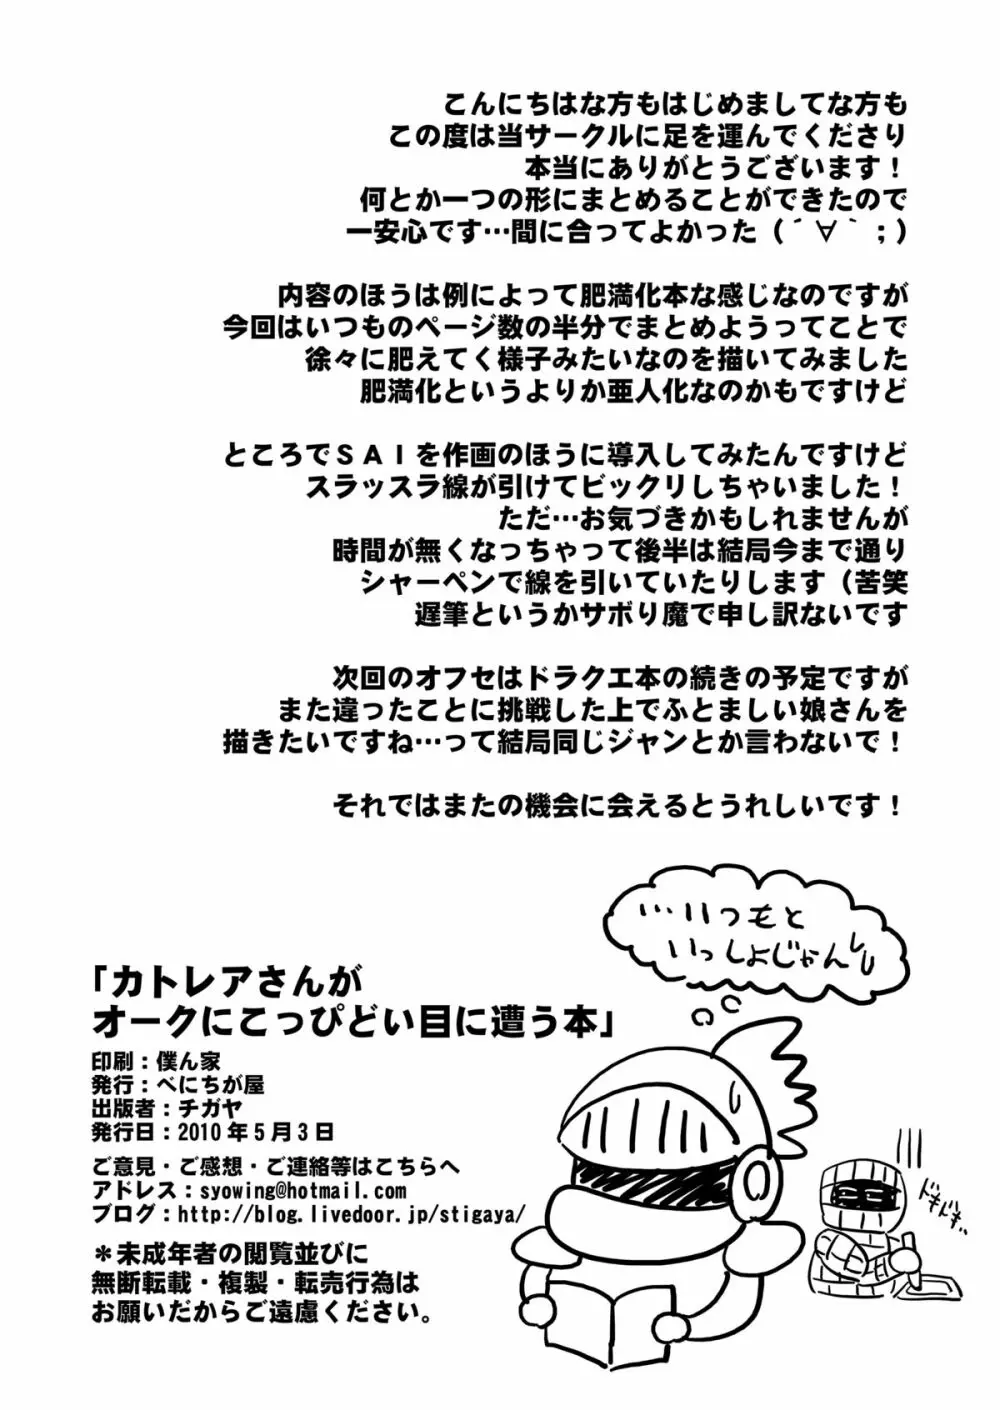 こんにちはな方もはじめましてな方も
この度は当サークルに足を運んでくださり
本当にありがとうございます！
何とか一つの形にまとめることができたので
一安心です…間に合ってよかった（´∀｀；）
内容のほうは例によって肥満化本な感じなのですが
今回はいつものページ数の半分でまとめようってことで
徐々に肥えてく様子みたいなのを描いてみました
肥満化というよりか亜人化なのかもですけど
ところでＳＡＩを作画のほうに導入してみたんですけど
スラッスラ線が引けてビックリしちゃいました！
ただ…お気づきかもしれませんが
時間が無くなっちゃって後半は結局今まで通り
シャーペンで線を引いていたりします（苦笑
遅筆というかサボり魔で申し訳ないです
次回のオフセはドラクエ本の続きの予定ですが
また違ったことに挑戦した上でふとましい娘さんを
描きたいですね…って結局同じジャンとか言わないで！
それではまたの機会に会えるとうれしいです！
…いつもと
いっしょじゃん
「カトレアさんが
オークにこっぴどい目に遭う本」
印刷：僕ん家
発行：べにちが屋
出版者：チガヤ
発行日：2010年5月3日
ご意見・ご感想・ご連絡等はこちらへ
アドレス：syowing@hotmail.com
ブログ：http://blog.livedoor.jp/stigaya/
＊未成年者の閲覧並びに
無断転載・複製・転売行為は
お願いだからご遠慮ください。
ドキドキ